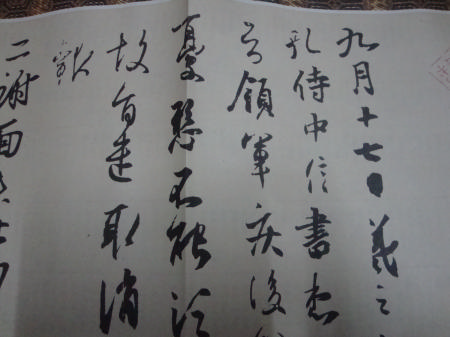 九月十七日羲之
孔侍中信書想
知領軍疾後
憂懸不能須
故旨遣取消
報
二謝面未比